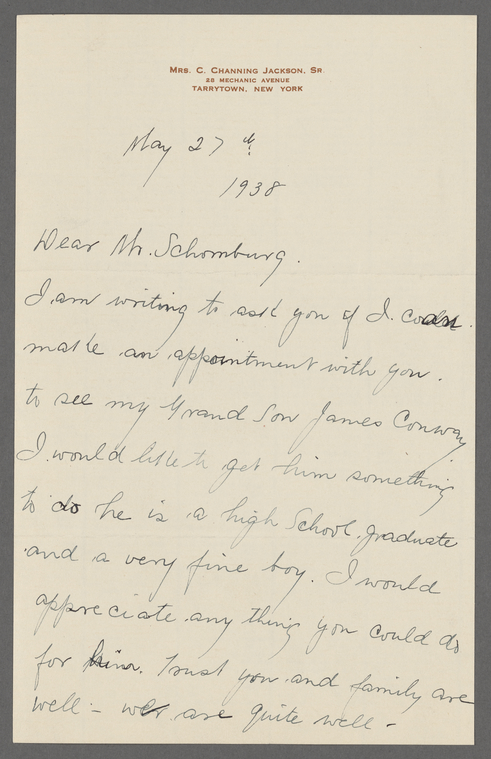 MRS. C. CHANNING JACKSON, SR.
28 MECHANIC AVENUE
TARRYTOWN, NEW YORK
May 27th
1938
Dear Mr. Schomburg.
I am writing to ask you if I can
make an appointment with you.
to see my Grand Son James Conway
I would like to get him something
to do he is a high School graduate
and a very fine boy. I would
appreciate any thing you could do
for him. Trust you and family are
well - we are quite well -